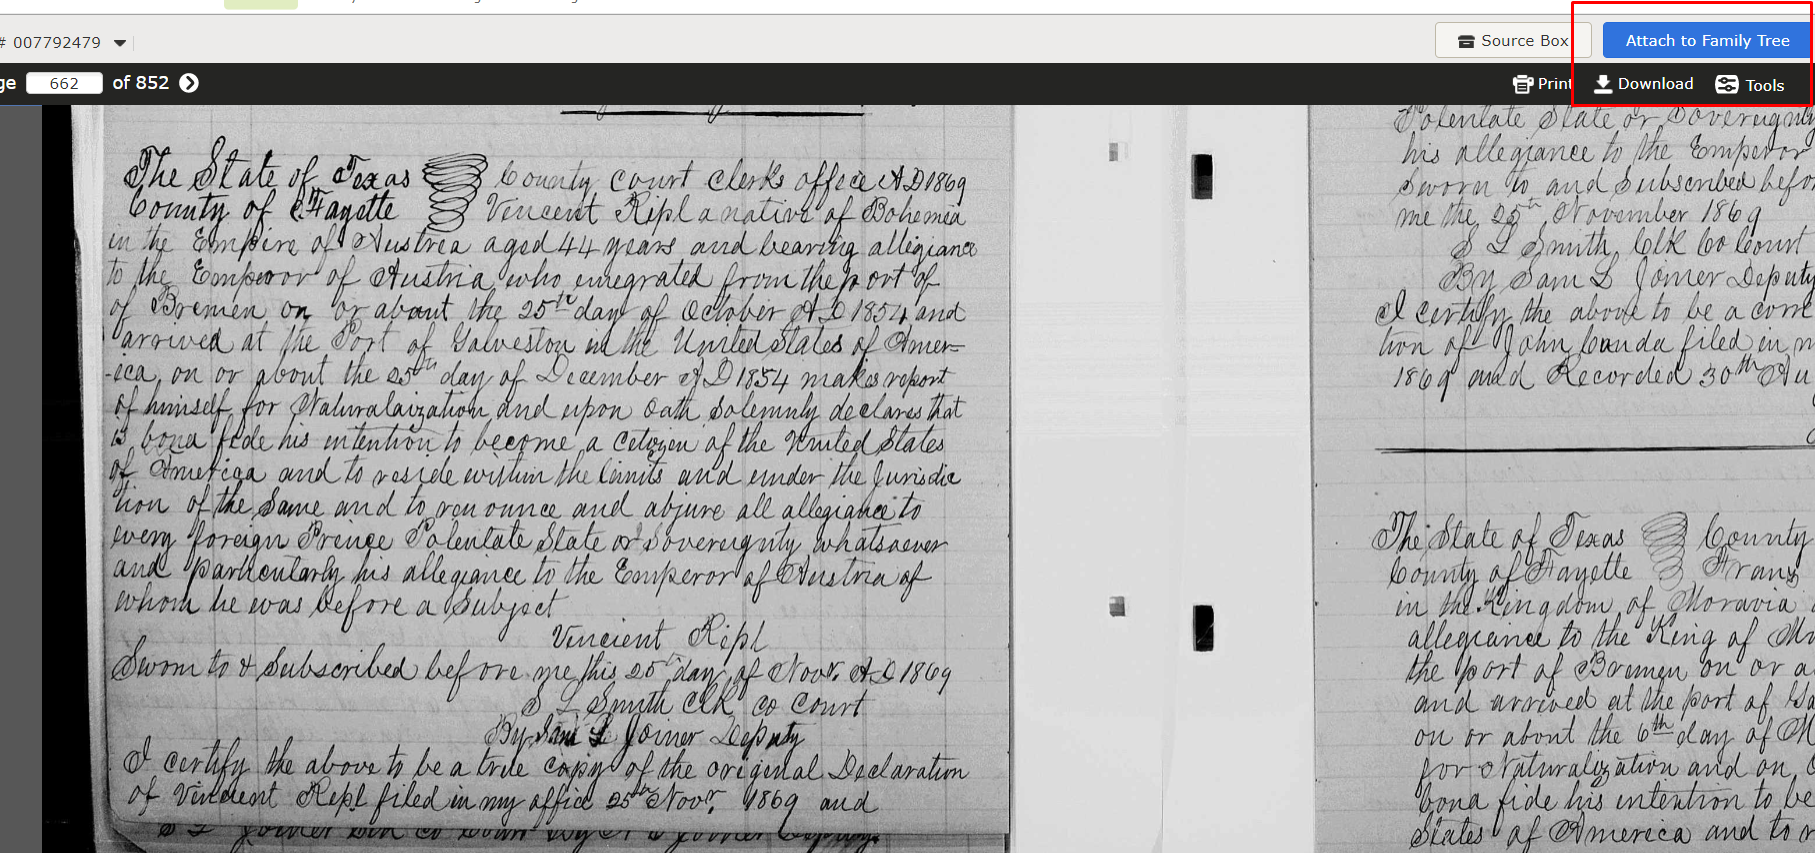 # 007792479
Source Box
Attach to Family Tree
ge 662 of 852
Print
Download
Tools
The State of Texas County Court Clerks office A D 1869
County of Fayette Vincent Ripl a native of Bohemia
in the Empire of Austria aged 44 years and bearing allegiance
to the Emperor of Austria who emegrated from the port of
of Bremen on or about the 25th day of October A D 1854 and
arrived at the Port of Galveston in the United States of Amer-
-ica on or about the 25th day of December A D 1854 makes report
of himself for Naturalaization and upon oath Solemnly declares that
is bona fide his intention to become a Citizen of the United States
of America and to reside within the limits and under the Jurisdic
tion of the Same and to renounce and abjure all allegiance to
every foreign Prince Potentate State or Sovereignty whatsoever
and particularly his allegiance to the Emperor of Austria of
whom he was before a Subject
Vincient Ripl
Sworn to & Subscribed before me this 25th day of Novr. A D 1869
S L Smith Clk Co Court
By Sam L Joiner Deputy
I certify the above to be a true copy of the original Declaration
of Vincient Ripl filed in my office 25th Novr. 1869 and
Potentate State or Sovereignty
his allegiance to the Emperor
Sworn to and Subscribed befo
me the 25th November 1869
S L Smith Clk Co Court
By Sam L Joiner Deputy
I certify the above to be a corre
tion of John Canda filed in m
1869 and Recorded 30th
The State of Texas County
County of Fayette Franz
in the Kingdom of Moravia
allegiance to the King of
the port of Bremen on or a
and arrived at the port of Ga
on or about the 6th day of M
for Naturalization and on
bona fide his intention to be
States of America and to r